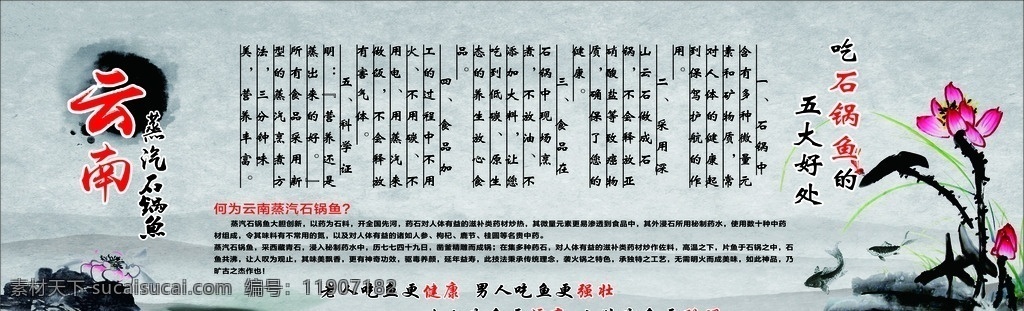 吃石锅鱼的
五大好处
一、石锅中
含有多种微量元
素和矿物质，常
对人体的健康起
到保驾护航的作
用。
二、采用深
山云石做成石
锅，不会释放亚
硝酸盐等致癌物
质，确保了您的
健康。
三、食品在
石锅中现场烹
煮，不放油、不
添加大料，让您
吃到低碳、原生
态的养生放心食
品。
四、食品加
工的过程中不用
火、不用碳、不
用电、用蒸汽来
做饭，不会释放
有害气体。
五、科学证
明：『营养还是
蒸出来的好。』
所有食品采用新
型的蒸汽烹煮方
法，三分钟味
美，营养丰富。
云南
蒸汽石锅鱼
何为云南蒸汽石锅鱼？
蒸汽石锅鱼大胆创新，以药为石料，开全国先河，药石对人体有益的滋补类药材炒热，其微量元素更易渗透到食品中，其外浸石所用秘制药水，使用数十种中药
材组成，令其味料有不常用的氮，以及对人体有益的诸如人参、枸杞、鹿节、桂园等名贵中药。
蒸汽石锅鱼，采西藏青石，浸入秘制药水中，历七七四十九日，凿凿精雕而成锅；在集多种药石，对人体有益的滋补类药材炒作佐料，高温之下，片鱼于石锅之中，石
鱼共沸，让人叹为观止，其味美飘香，更有神奇功效，驱毒养颜，延年益寿，此技法秉承传统理念，袭火锅之特色，承独特之工艺，无需明火而成美味，如此神品，乃
旷古之杰作也！
老人吃鱼更健康 男人吃鱼更强壮
素材天下 sucaisucai.com 编号：11907382